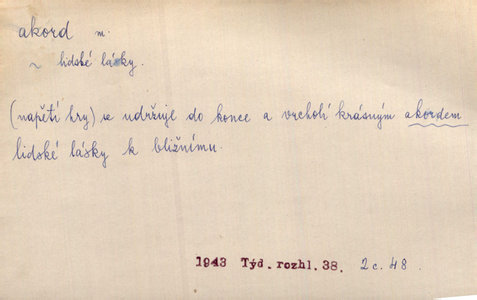 akord m.
~ lidské lásky.
(napětí hry) se udržuje do konce a vrcholí krásným akordem
lidské lásky k bližnímu.
1943 Týd. rozhl. 38. 2 c. 48.